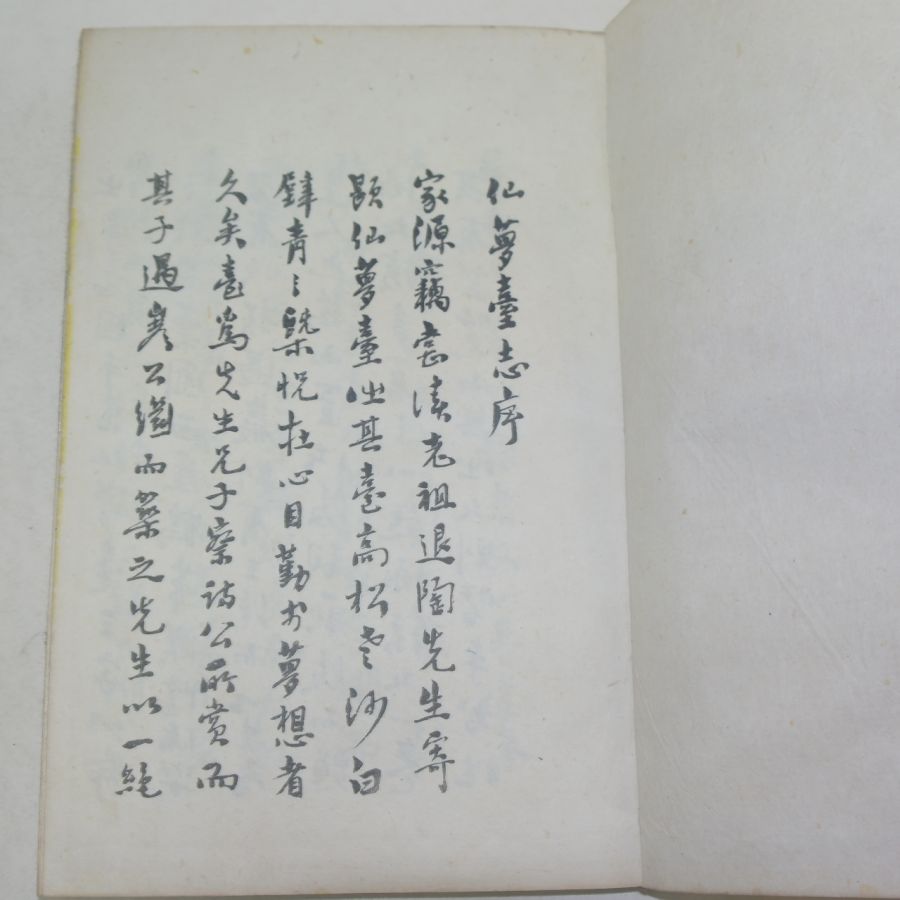 仙夢臺志序
家源竊嘗讀老祖退陶先生寄
題仙夢臺其臺高松老沙白
壁青〻槩怳在心目勤於夢想者
久矣臺爲先生兄子察訪公所賞而
其子遇巖公繼而築之先生以一絶